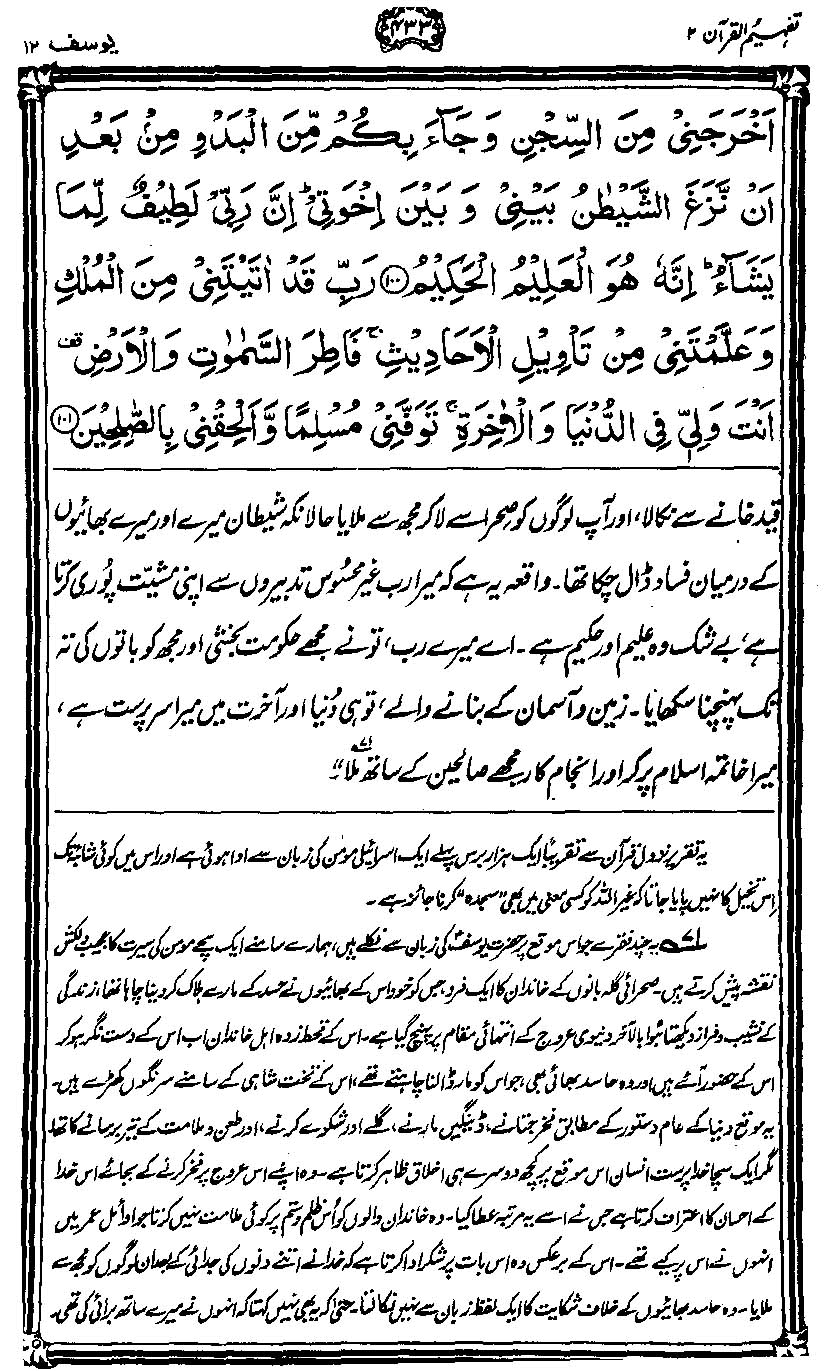 تفہیم القرآن ۲
۴۳۳
یوسف ۱۲
اَخْرَجَنِیْ مِنَ السِّجْنِ وَ جَآءَ بِكُمْ مِّنَ الْبَدْوِ مِنْۢ بَعْدِ
اَنْ نَّزَغَ الشَّیْطٰنُ بَیْنِیْ وَ بَیْنَ اِخْوَتِیْ ؕ اِنَّ رَبِّیْ لَطِیْفٌ لِّمَا
یَشَآءُ ؕ اِنَّهٗ هُوَ الْعَلِیْمُ الْحَكِیْمُ ﴿۱۰۰﴾ رَبِّ قَدْ اٰتَیْتَنِیْ مِنَ الْمُلْكِ
وَ عَلَّمْتَنِیْ مِنْ تَاْوِیْلِ الْاَحَادِیْثِ ۚ فَاطِرَ السَّمٰوٰتِ وَ الْاَرْضِ ۫
اَنْتَ وَلِیّٖ فِی الدُّنْیَا وَ الْاٰخِرَةِ ۚ تَوَفَّنِیْ مُسْلِمًا وَّ اَلْحِقْنِیْ بِالصّٰلِحِیْنَ ﴿۱۰۱﴾
قید خانے سے نکالا، اور آپ لوگوں کو صحرا سے لا کر مجھ سے ملایا حالانکہ شیطان میرے اور میرے بھائیوں
کے درمیان فساد ڈال چکا تھا۔ واقعہ یہ ہے کہ میرا رب غیر محسوس تدبیروں سے اپنی مشیّت پوری کرتا
ہے، بے شک وہ علیم اور حکیم ہے۔ اے میرے رب، تو نے مجھے حکومت بخشی اور مجھ کو باتوں کی تہ
تک پہنچنا سکھایا۔ زمین و آسمان کے بنانے والے، تو ہی دُنیا اور آخرت میں میرا سر پرست ہے،
میرا خاتمہ اسلام پر کر اور انجام کار مجھے صالحین کے ساتھ ملا"۔ ۷۱
یہ تقریر نزولِ قرآن سے تقریباً ایک ہزار برس پہلے ایک اسرائیلی مومن کی زبان سے ادا ہوئی ہے اور اس میں کوئی شائبہ تک
اِس تخیل کا نہیں پایا جاتا کہ غیر اللہ کو کسی معنی میں بھی "سجدہ" کرنا جائز ہے۔
۷۱ یہ چند فقرے جو اس موقع پر حضرت یوسفؑ کی زبان سے نکلے ہیں، ہمارے سامنے ایک سچے مومن کی سیرت کا عجیب دلکش
نقشہ پیش کرتے ہیں۔ صحرائی گلہ بانوں کے خاندان کا ایک فرد، جس کو خود اس کے بھائیوں نے حسد کے مارے ہلاک کر دینا چاہا تھا، زندگی
کے نشیب و فراز دیکھتا ہُوا بالآخر دنیوی عروج کے انتہائی مقام پر پہنچ گیا ہے۔ اس کے قحط زدہ اہل خاندان اب اس کے دست نگر ہو کر
اس کے حضور آئے ہیں اور وہ حاسد بھائی بھی، جو اس کو مار ڈالنا چاہتے تھے، اس کے تخت شاہی کے سامنے سرنگوں کھڑے ہیں۔
یہ موقع دنیا کے عام دستور کے مطابق فخر جتانے، ڈینگیں مارنے، گلے اور شکوے کرنے، اور طعن و ملامت کے تیر برسانے کا تھا۔
مگر ایک سچا خدا پرست انسان اس موقع پر کچھ دوسرے ہی اخلاق ظاہر کرتا ہے۔ وہ اپنے اس عروج پر فخر کرنے کے بجائے اس خدا
کے احسان کا اعتراف کرتا ہے جس نے اسے یہ مرتبہ عطا کیا۔ وہ خاندان والوں کو اُس ظلم و ستم پر کوئی ملامت نہیں کرتا جو اوائل عمر میں
انہوں نے اس پر کیے تھے۔ اس کے برعکس وہ اس بات پر شکر ادا کرتا ہے کہ خدا نے اتنے دنوں کی جدائی کے بعد ان لوگوں کو مجھ سے
ملایا۔ وہ حاسد بھائیوں کے خلاف شکایت کا ایک لفظ زبان سے نہیں نکالتا۔ حتیٰ کہ یہ بھی نہیں کہتا کہ انہوں نے میرے ساتھ برائی کی تھی۔